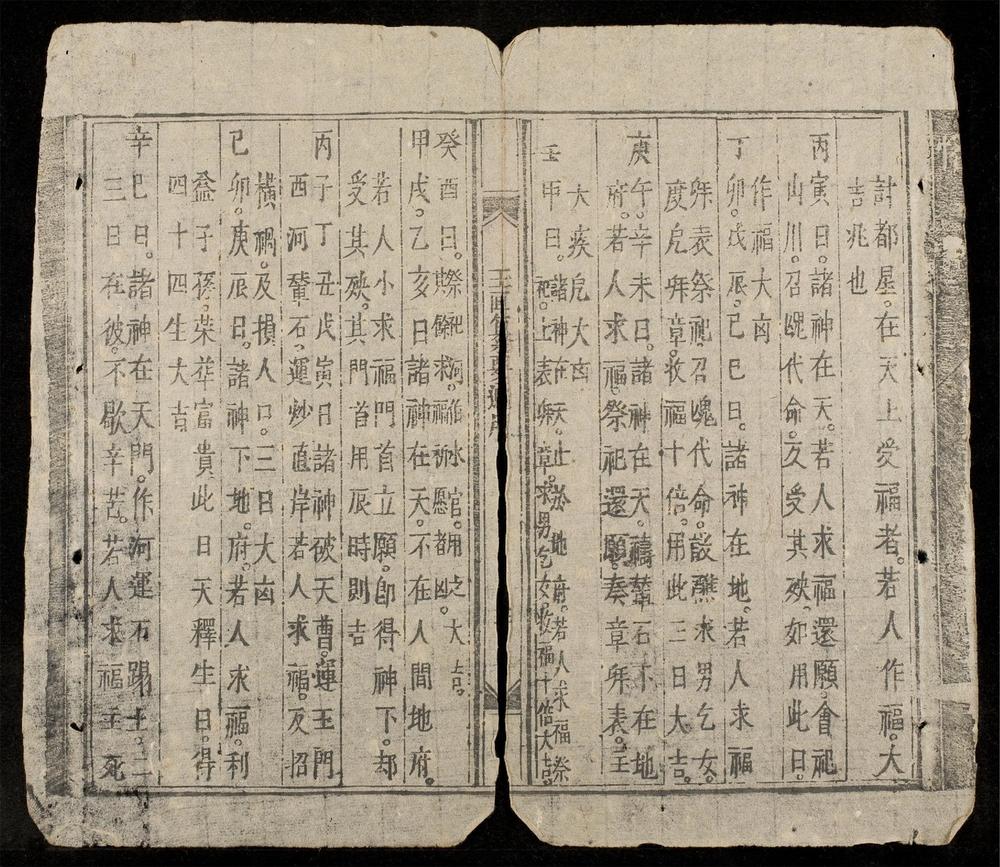 計都星。在天上受福者。若人作福。大
吉兆也
丙寅日。諸神在天。若人求福還願。會祀
山川。召䰟代命。反受其殃。如用此日。
作福大凶
丁卯。戊辰。己巳日。諸神在地。若人求福
拜表祭祀。召魂代命。設醮。求男乞女。
度尨拜章。收福十倍。用此三日大吉。
庚午。辛未日。諸神在天。禱輦石不在地
府。若人求福。祭祀還願。奏章拜表。主
大疾尨大凶
壬申日。諸神在天。上於地府。若人求福祭
祀。上表拜章。求男乞女。收福十倍大吉。
癸酉日。祭祀河伯水官。用之大吉。
餘求福祈愿者凶。
甲戌。乙亥日諸神在天。不在人間地府。
若人小求福門首立願。即得神下。却
受其殃。其門首用辰時則吉
丙子丁丑戊寅日諸神破天曹。運玉門
西河輦石。運炒直岸若人求福。反招
橫禍。及損人口。三日大凶
己卯。庚辰日。諸神下地。府。若人求福。利
益子孫。榮華富貴此日天釋生日。得
四十四生大吉
辛巳日。諸神在天門。作河運石踢土。二
三日在彼。不歇辛苦。若人求福主死